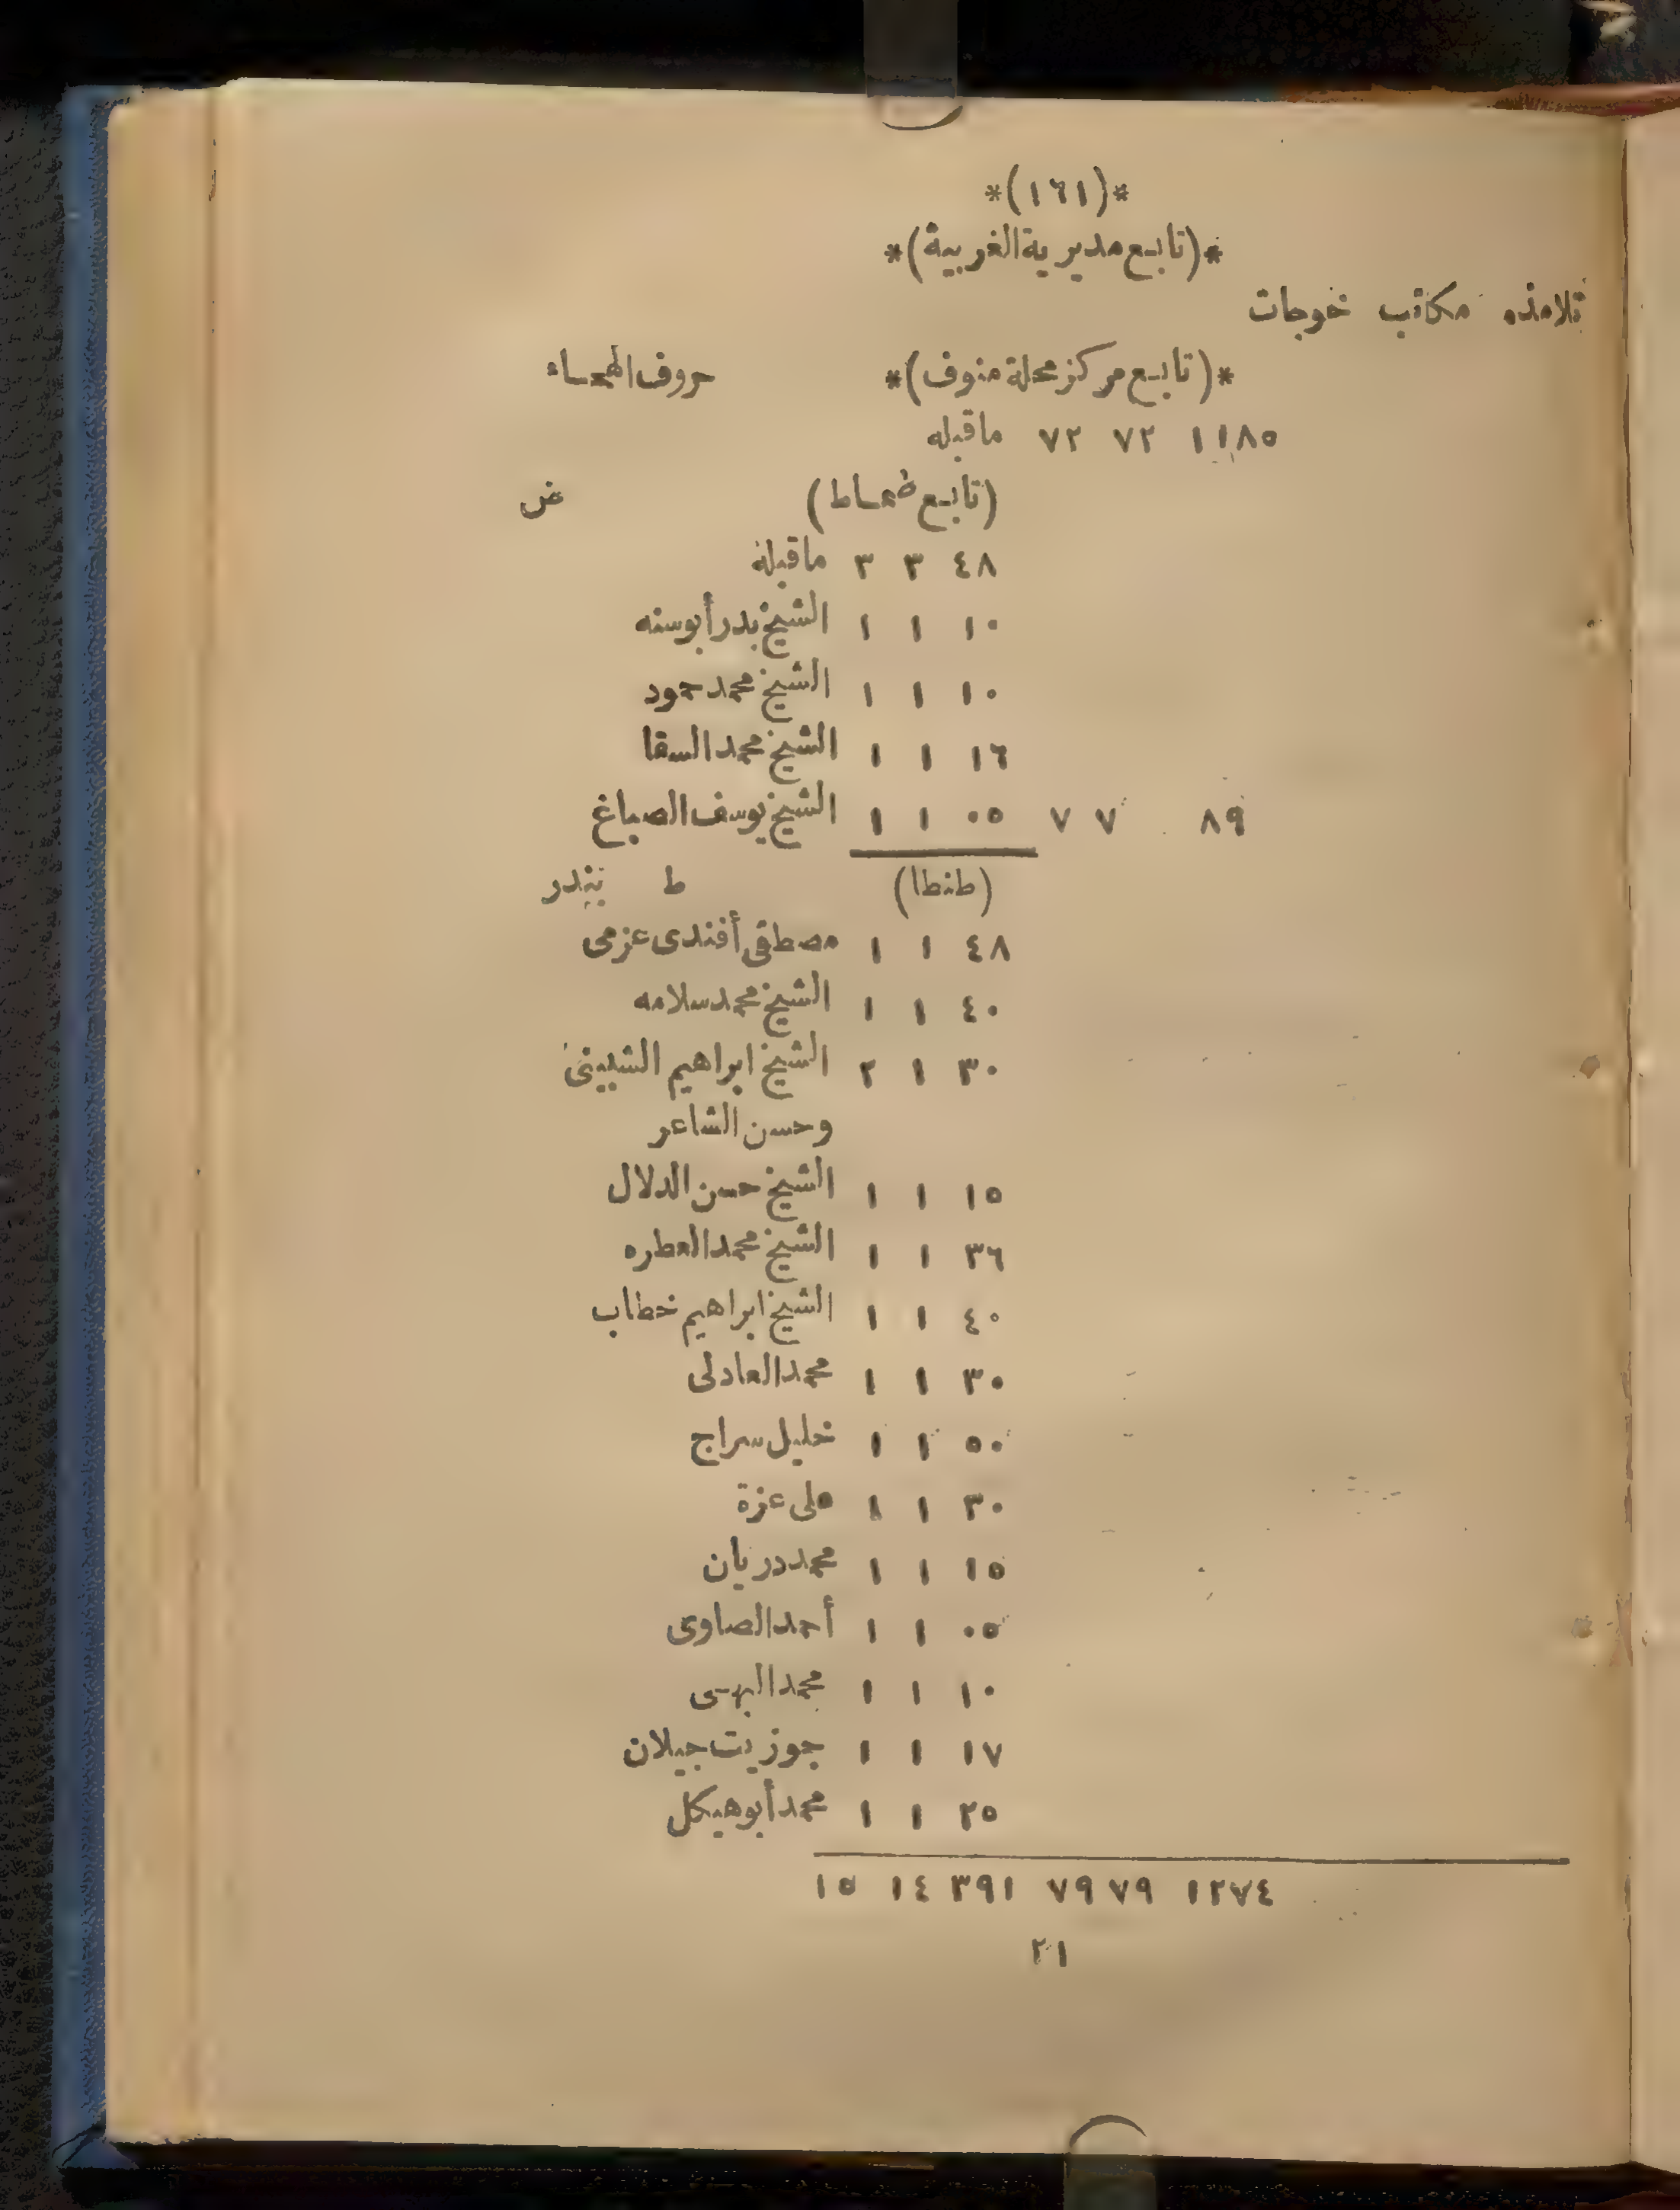 *(١٦١)*
*(تابع مديرية الغربية)*
تلامذه مكاتب خوجات
*(تابع مركز محلة منوف)* حروف الهجاء
١١٨٥ ٧٢ ٧٢ ماقبله
(تابع ) ض
٤٨ ٣ ٣ ماقبله
١٠ ١ ١ الشيخ بدر أبوسنه
١٠ ١ ١ الشيخ محمد حمود
١٦ ١ ١ الشيخ محمد السقا
٨٩ ٧ ٧ ٠٥ ١ ١ الشيخ يوسف الصباغ
(طنطا) ط بندر
٤٨ ١ ١ مصطفى أفندى عزمى
٤٠ ١ ١ الشيخ محمد سلامه
٣٠ ١ ٢ الشيخ ابراهيم الشبينى
وحسن الشاعر
١٥ ١ ١ الشيخ حسن الدلال
٣٦ ١ ١ الشيخ محمد العطره
٤٠ ١ ١ الشيخ ابراهيم خطاب
٣٠ ١ ١ محمد العادلى
٥٠ ١ ١ خليل سراج
٣٠ ١ ١ على عزة
١٥ ١ ١ محمد دربان
٠٥ ١ ١ أحمد الصاوى
١٠ ١ ١ محمد
١٧ ١ ١ جوزيت جيلان
٢٥ ١ ١ محمد أبوهيكل
١٢٧٤ ٧٩ ٧٩ ٣٩١ ١٤ ١٥
٢١